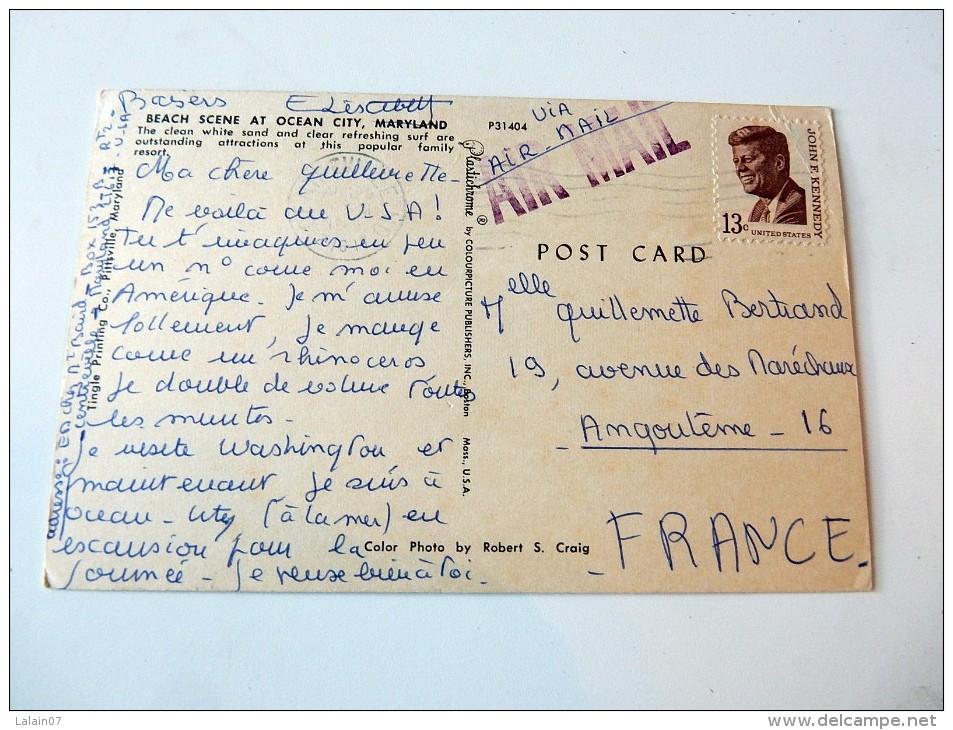 Baisers Elisabeth
BEACH SCENE AT OCEAN CITY, MARYLAND
The clean white sand and clear refreshing surf are
outstanding attractions at this popular family
resort.
Ma chère Guillemette-
Me voilà au U-S-A!
Tu t'imagines un peu
un n° come moi en
Amérique. Je m'amuse
follement, je mange
come un rhinoceros
je double de volume toutes
les minutes-
Je visite Washington et
maintenant je suis à
Ocean-City (à la mer) en
excursion pour la
journée- Je pense bien à toi.
adresse:
Box 153 A
RT2-
Centreville Maryland
U-SA
Tingle Printing Co., Pittsville, Maryland
Color Photo by Robert S. Craig
P31404
Plastichrome ® by COLOURPICTURE PUBLISHERS, INC., Boston Mass., U.S.A.
VIA
AIR-MAIL
AIR MAIL
JOHN F. KENNEDY
13c
UNITED STATES
POST CARD
Melle Guillemette Bertrand
19, avenue des Maréchaux
Angoulème - 16
FRANCE.
Lalain07
http://www.delcampe.net